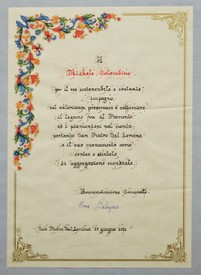 A
Michele Colombino
per il suo instancabile e costante
impegno
nel valorizzare, preservare e rafforzare
il legame fra il Piemonte
ed i piemontesi nel mondo
portando San Pietro Val Lemina
e il suo monumento come
centro e simbolo
di aggregazione mondiale.
Riconoscimento Comunità
San Pietro Val Lemina, giugno